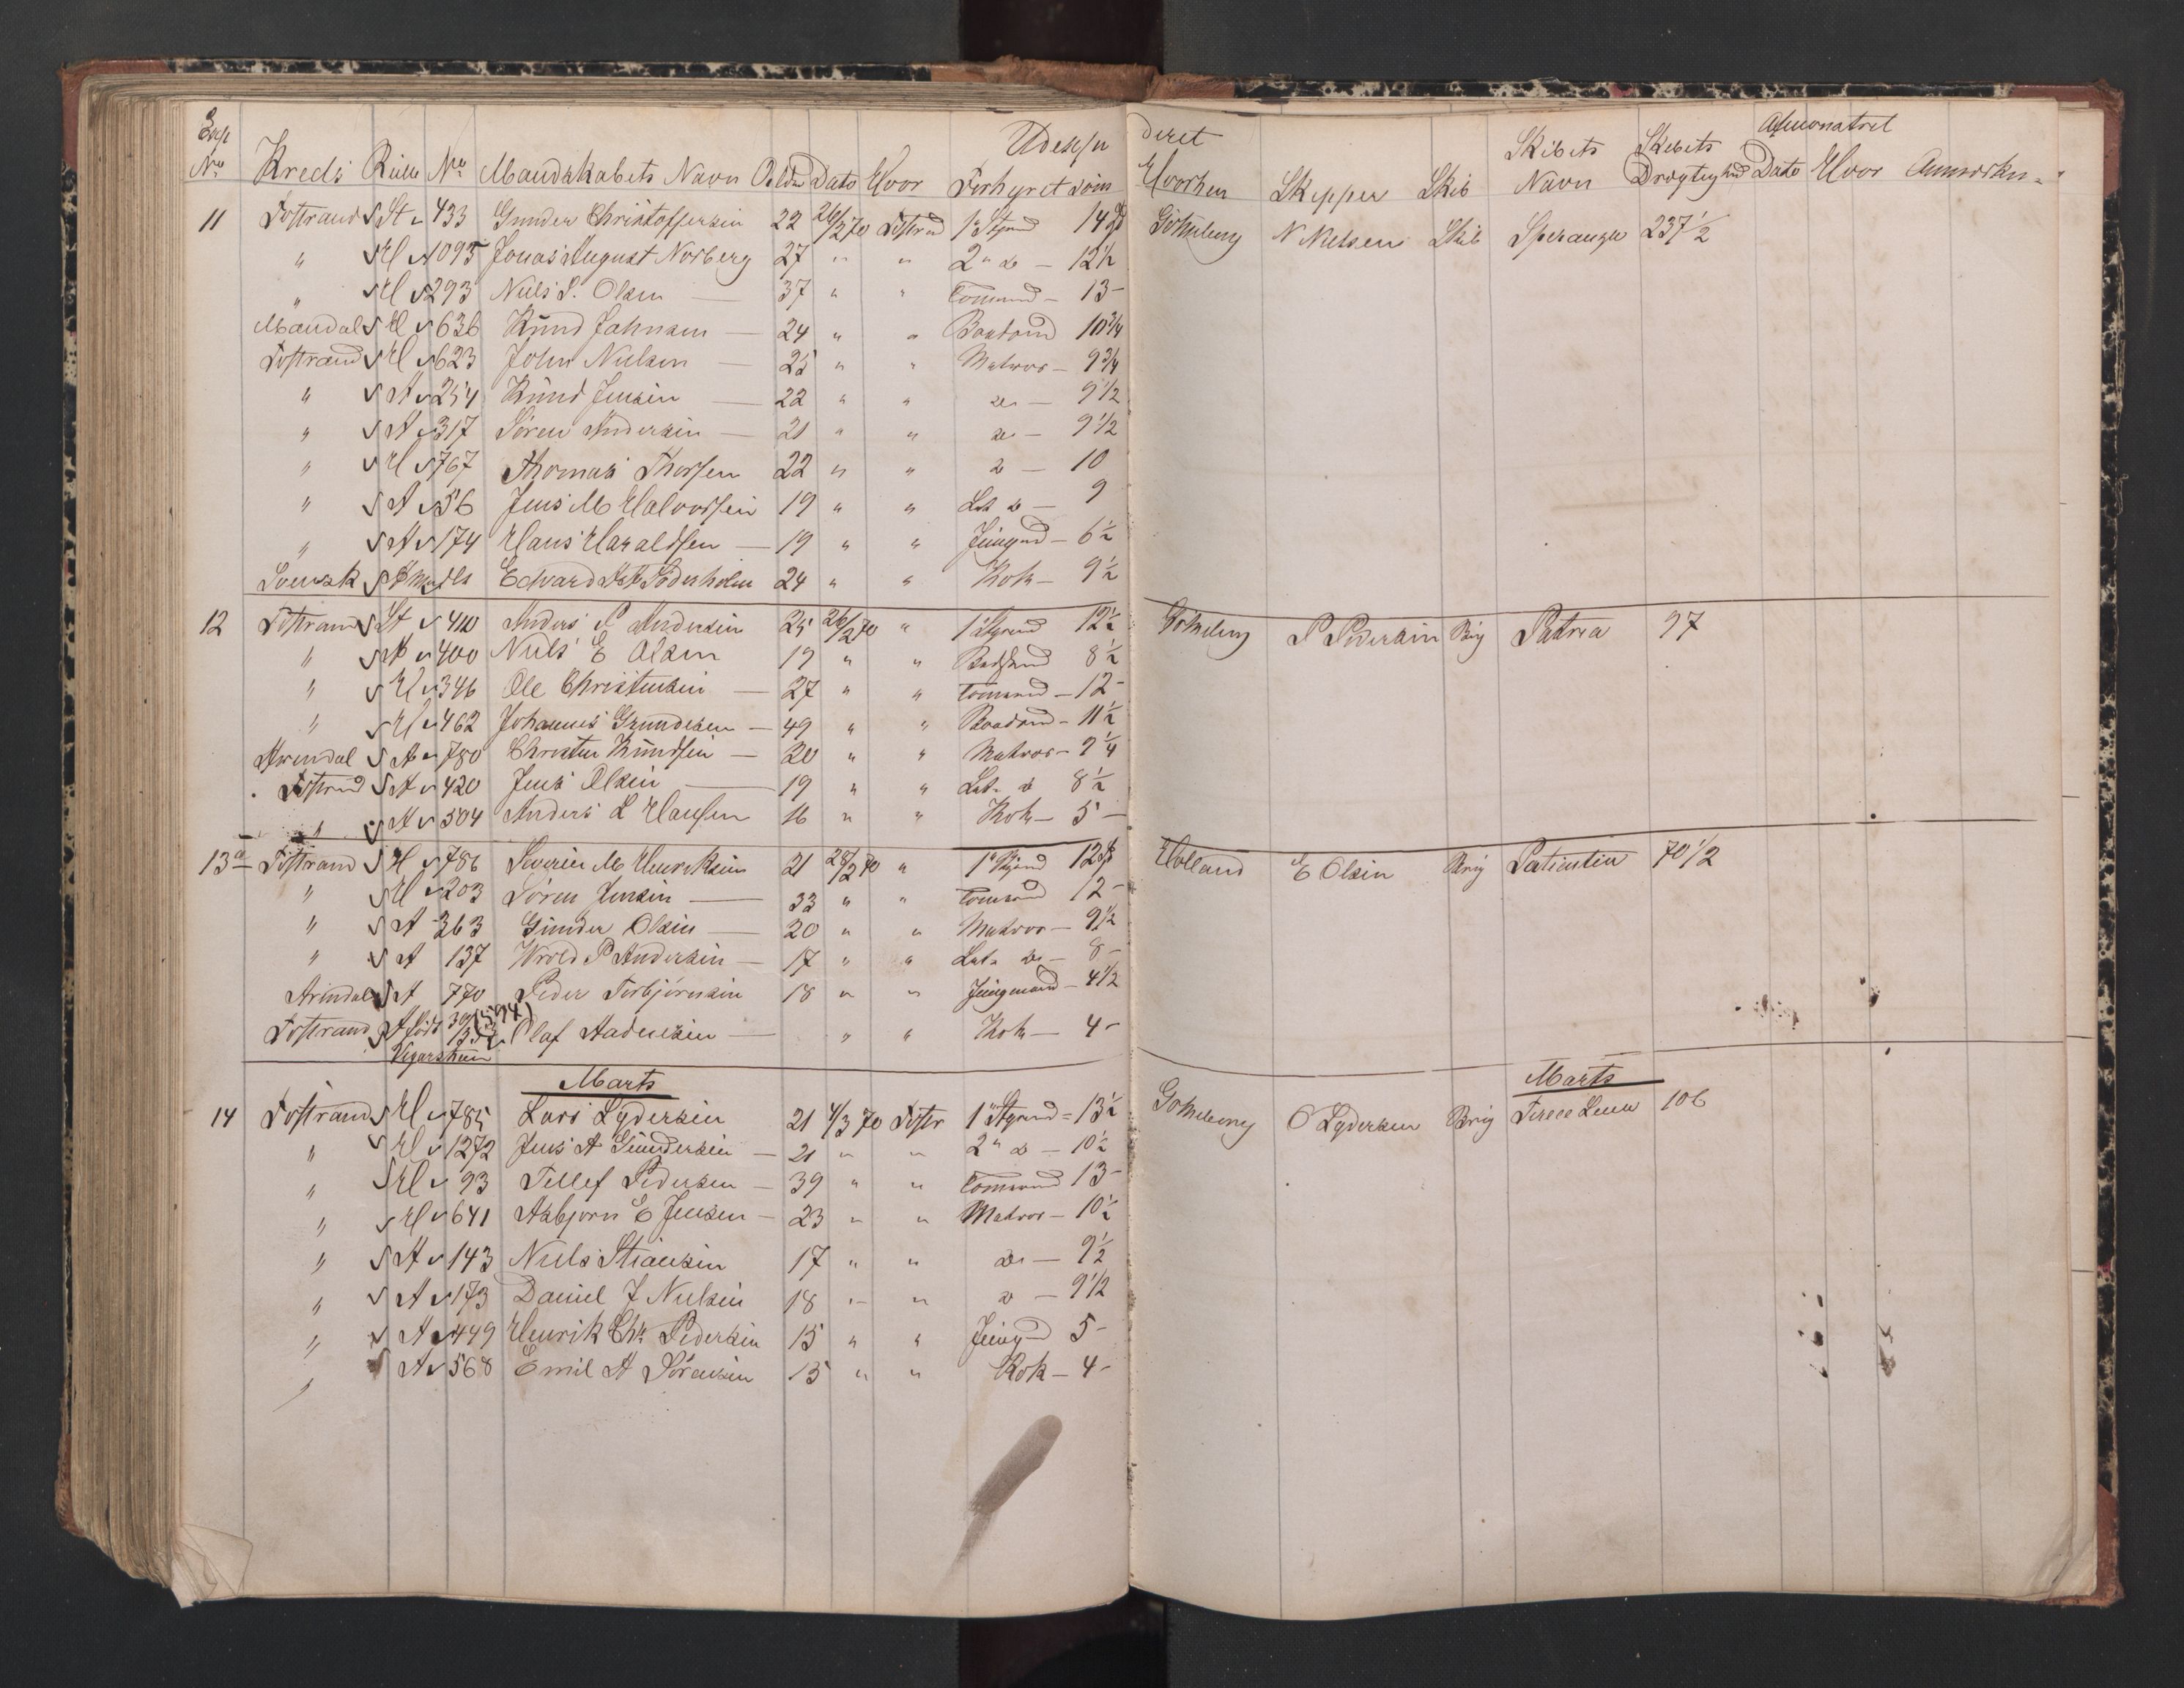 Exp Udexpederet Skibets Skibets Afmonstret
No Kreds Rulle No Mandskabets Navn Dato Hvor Forhyret som Hvorhen Skipper Skib Navn Drægtighed Dato Hvor
11 St 433 Gunder Christoffersen 22 26/2 70 1ste 14 Gothenborg N Nielsen Skib 237 1/2
" H 1095 Jonas August Norberg 27 " " 2n do — 12 1/2
" H 293 Niels S. Olsen — 37 " " Tømmd — 13 -
Mandal H 636 Knud Johnsen — 24 " " 10 3/4
Tvestrand H 623 John Nielsen — 25 " " Matros — 9 3/4
" A 254 Knud Jensen — 22 " " do — 9 1/2
" A 317 Søren Andersen — 21 " " do — 9 1/2
" H 767 Thomas Thorsen 22 " " do — 10
" A 56 Jens M Halvorsen 19 " " Let do — 9
" A 174 Hans Haraldsen — 19 " " Jungmd — 6 1/2
Svensk Edward Söderholm 24 " " Kok — 9 1/2
12 Tvestrand St 410 Anders P Andersen 25 26/2 70 " 1 Styrmd 12 1/2 Gothenborg P Pedersen Brig Patria 97
" A 400 Niels E Olsen 19 " " 8 1/2
" H 346 Ole Christensen — 27 " " Tømmd — 12 -
" H 462 Johannes Gundersen — 49 " " 11 1/2
Arendal A 780 Christen Knudsen — 20 " " Matros — 9 1/4
Tvestrand A 420 Jens Olsen — 19 " " Let do 8 1/2
" A 504 Anders L Hansen 16 " " Kok — 5 —
13 a Tvestrand H 786 Severin M Henriksen 21 28/2 70 " 1 Styrmd 12 Holland E Olsen Brig Patientia 70 1/2
" H 203 Søren Jensen — 33 " " Tømmd 12 -
" A 363 Gunder Olsen — 20 " " Matros — 9 1/2
" A 137 Wrold P Andersen — 17 " " Let do — 8 -
Arendal A 770 Peder Torbjørnsen 18 " " Jungmand — 4 1/2
Tvestrand A født (594) Olaf Aadnesen — " " Kok — 4 -
Vegarsheien
Marts Marts
14 Tvestrand H 785 Lars Lydersen 21 4/3 70 Tvestr 1ste Styrmd — 13 1/2 Gothenborg O Lydersen Brig 106
" H 1272 Jens A Gundersen — 21 " " 2n do — 10 1/2
" H 93 Tellef Pedersen — 39 " " Tømmd 13 -
" H 641 Asbjørn E Jensen — 23 " " Matros — 10 1/2
" A 143 Niels Stiansen 17 " " do — 9 1/2
" A 173 Daniel J Nielsen 18 " " do — 9 1/2
" A 449 Henrik Chr. Pedersen 15 " " Jungmd 5 -
" A 568 Emil A Sørensen 15 " " Kok — 4 -